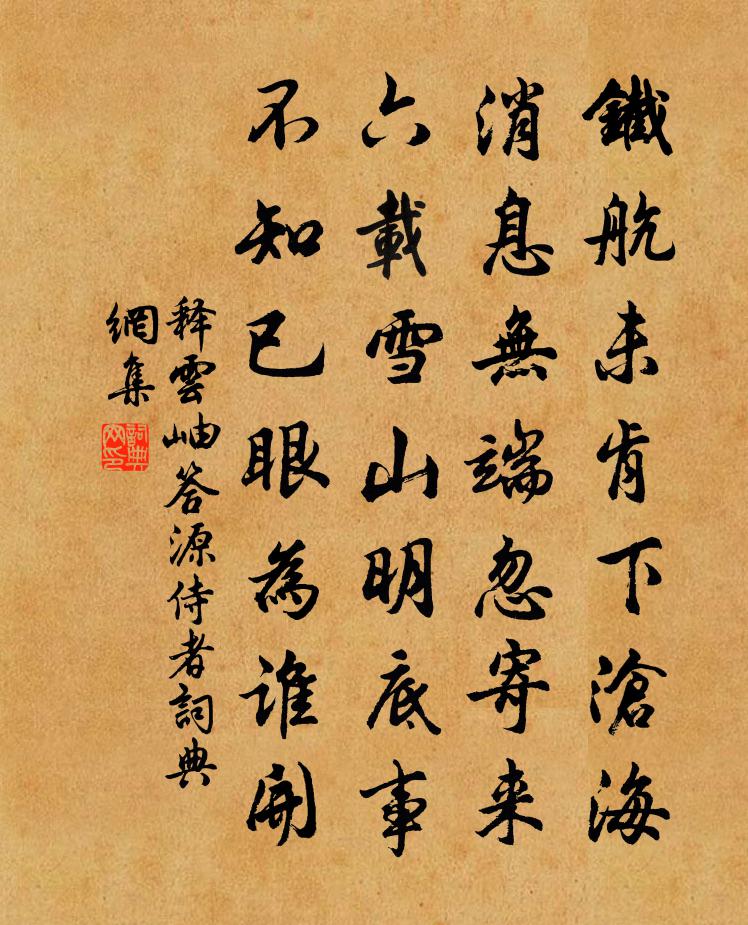 鐵航未肯下滄海
消息無端忽寄来
六載雪山明底事
不知已眼為誰開
释雲岫答源侍者詞典
網集
詞典
网印